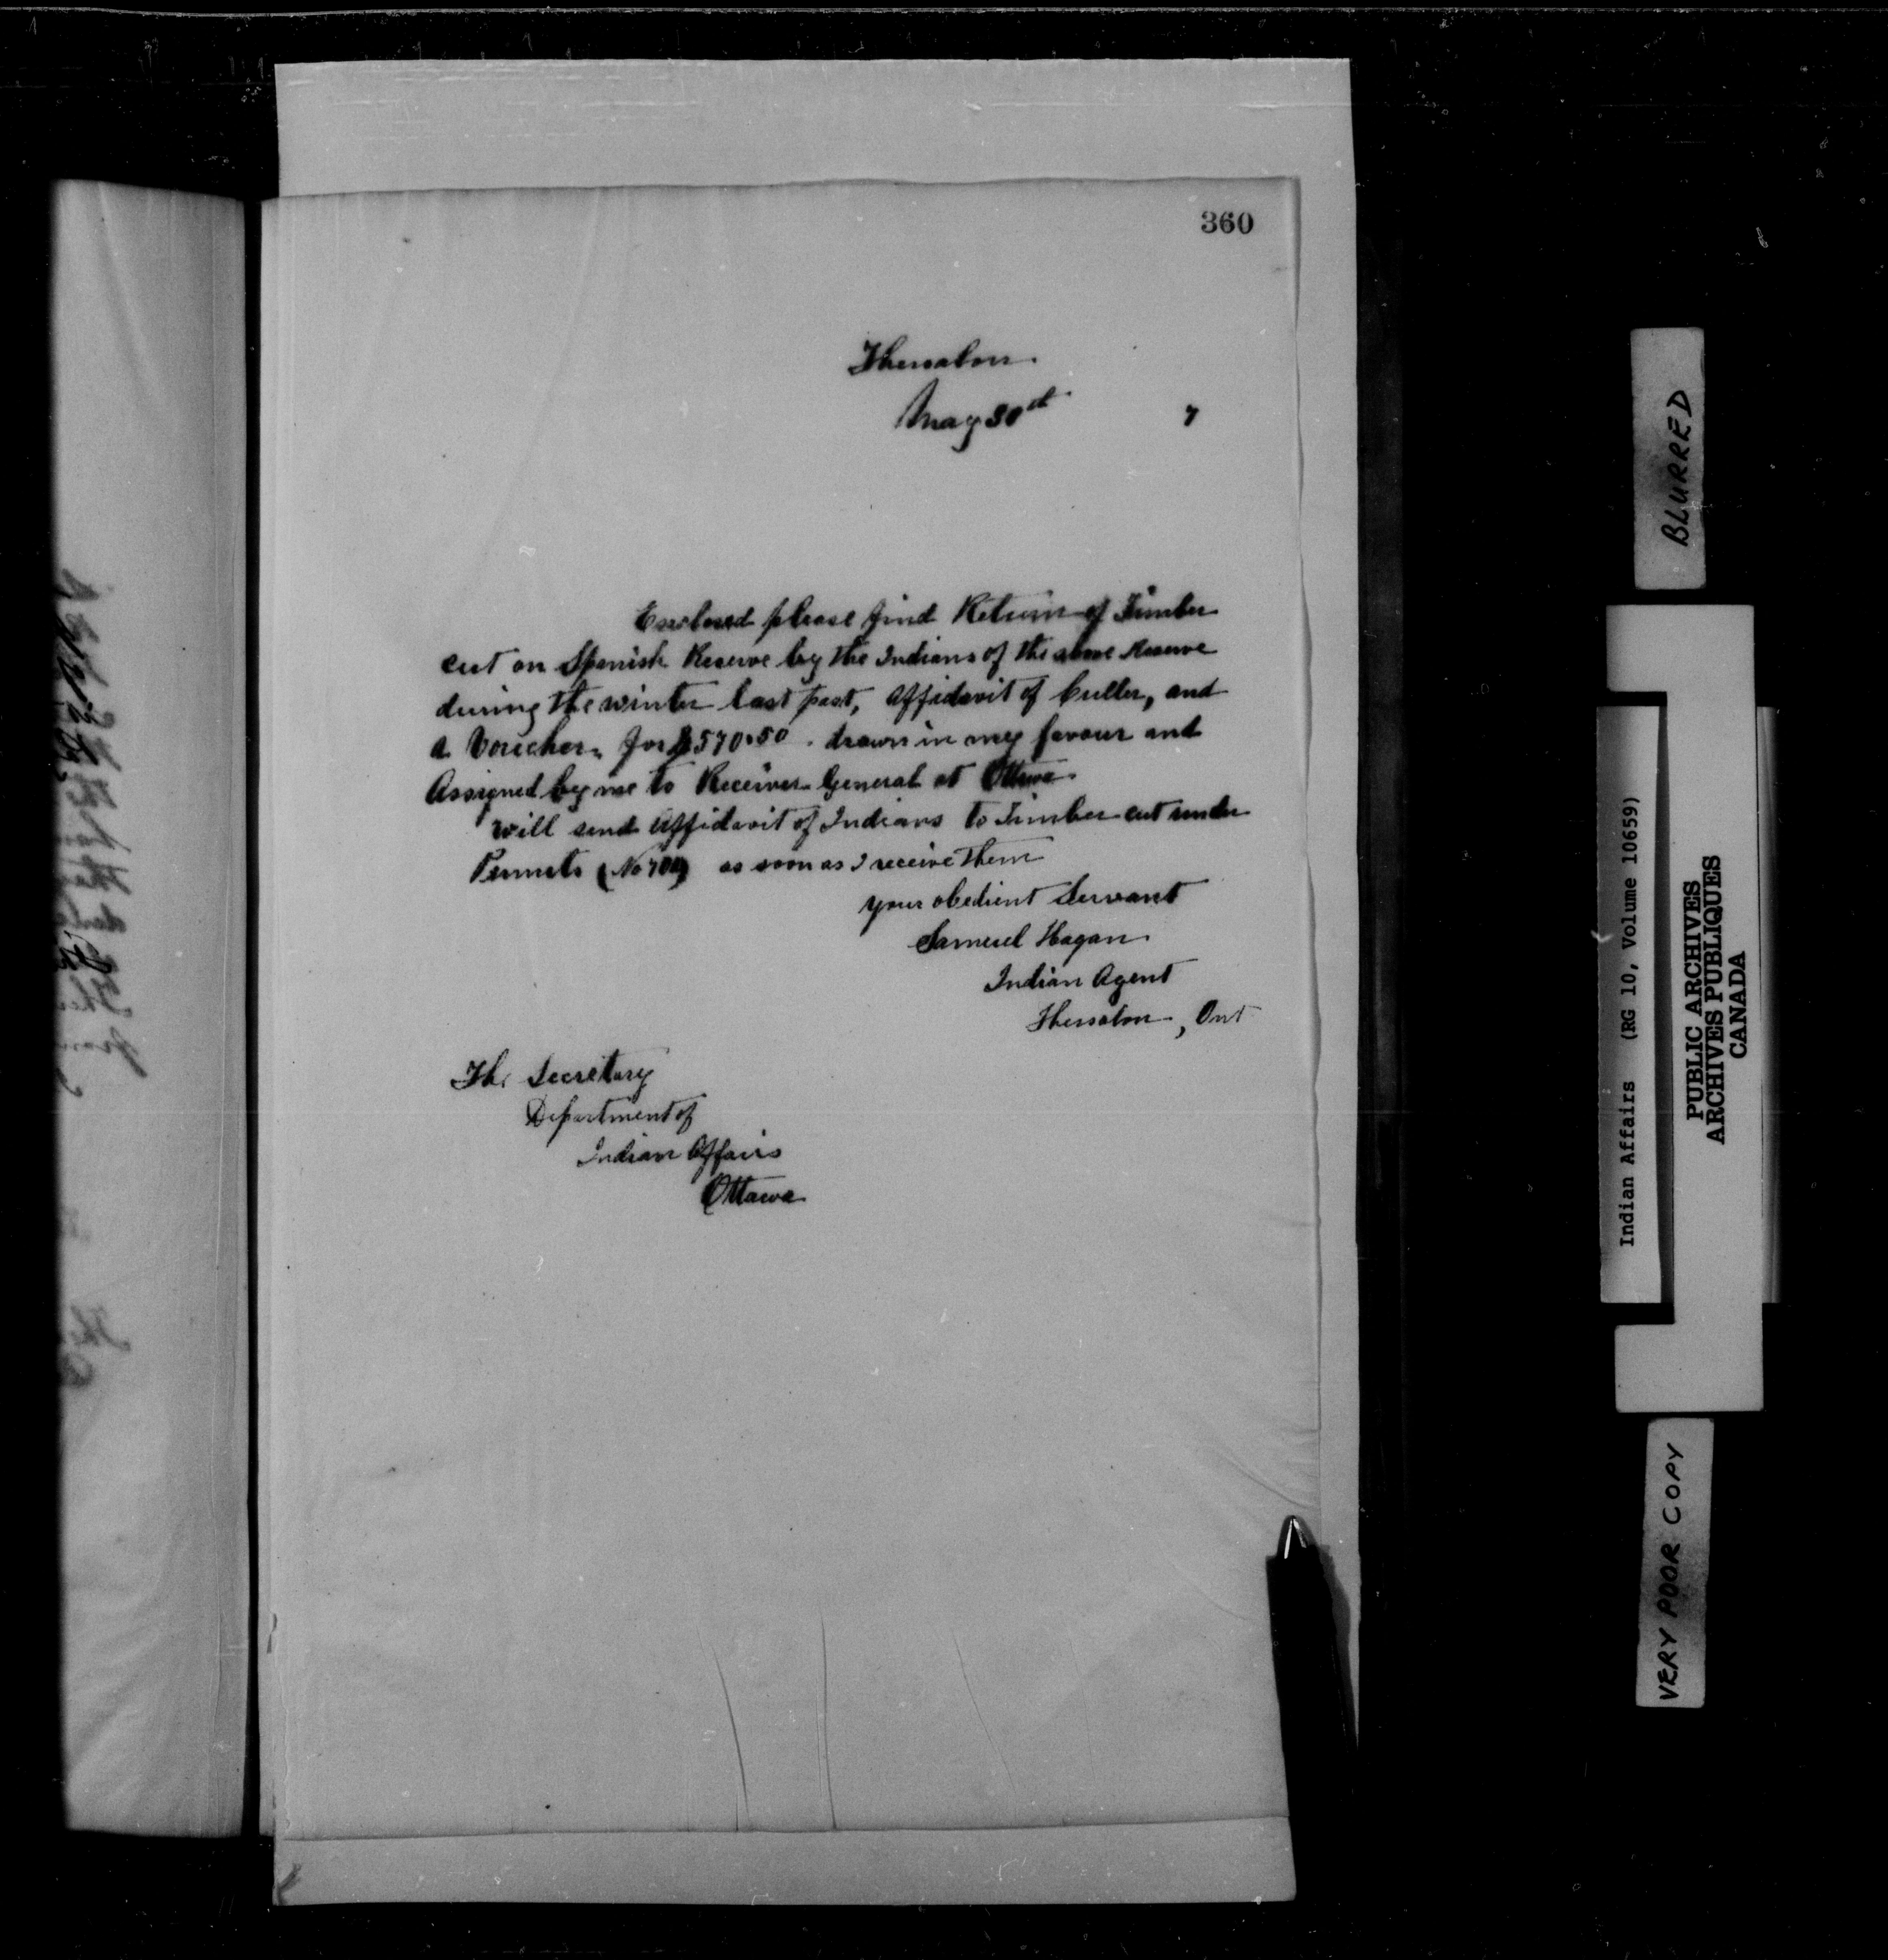 360
Thessalon.
May 30th 7
Enclosed please find Return of Timber
cut on Spanish Reserve by the Indians of the above Reserve
during the winter last past, Affidavit of Culler, and
a Voucher for $570.50 . drawn in my favour and
Assigned by me to Receiver General at Ottawa.
Will send Affidavit of Indians to Timber cut under
Permits (No ) as soon as I receive them
your obedient Servant
Samuel Hagan
Indian Agent
Thessalon, Ont
The Secretary
Department of
Indian Affairs
Ottawa
BLURRED
Indian Affairs (RG 10, Volume 10659)
PUBLIC ARCHIVES
ARCHIVES PUBLIQUES
CANADA
VERY POOR COPY